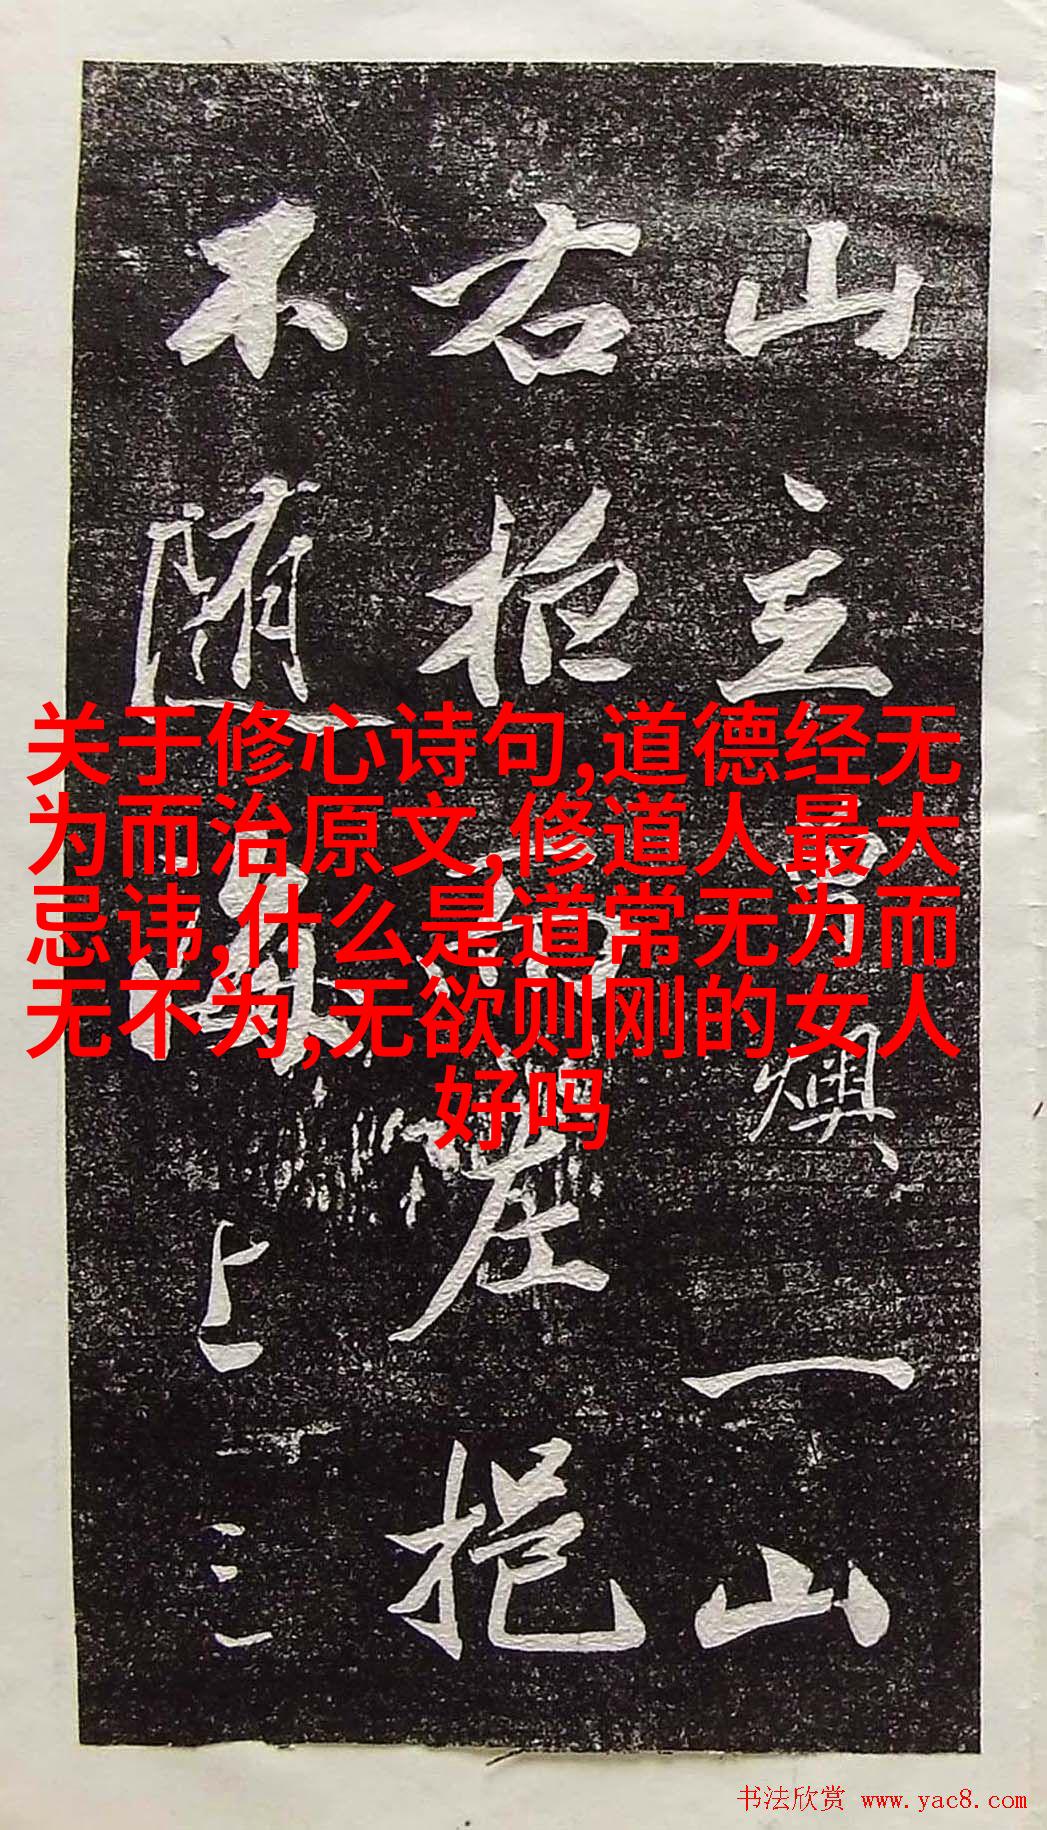 山主
燠一山
右
左挹
不随
上三
关于修心诗句,道德经无
为而治原文,修道人最大
忌讳,什么是道常无为而
无不为,无欲则刚的女人
好吗
书法欣赏 www.yac8.com